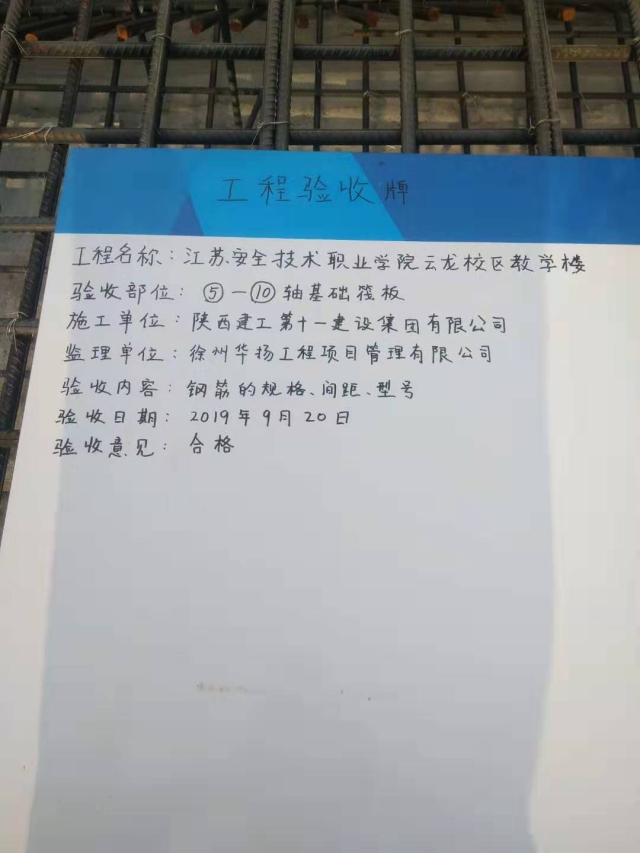 工程验收牌
工程名称：江苏安全技术职业学院云龙校区教学楼
验收部位：⑤—⑩轴基础筏板
施工单位：陕西建工第十一建设集团有限公司
监理单位：徐州华扬工程项目管理有限公司
验收内容：钢筋的规格、间距、型号
验收日期：2019年9月20日
验收意见：合格